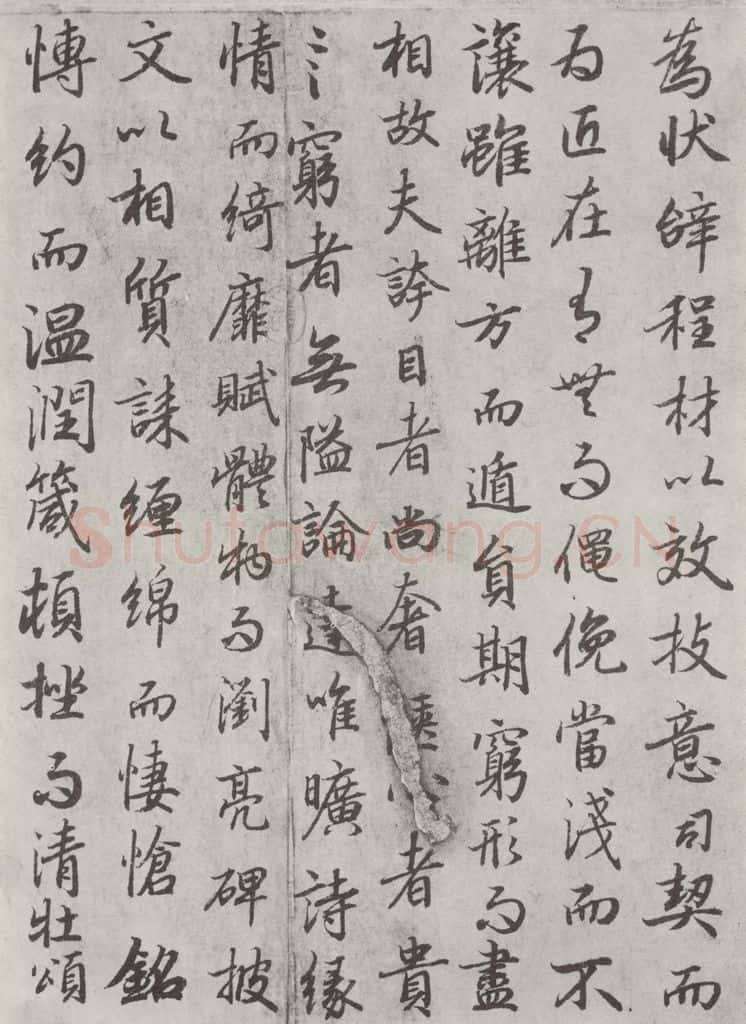 為状辝程材以效技意司契而
为匠在有無而僶俛當淺而不
讓雖離方而遁員期窮形而盡
相故夫誇目者尚奢愜心者貴
言窮者無隘論達唯曠詩緣
情而綺靡賦體物而瀏亮碑披
文以相質誄纏綿而悽愴銘
博約而温潤箴頓挫而清壯頌
Shufawang.CN